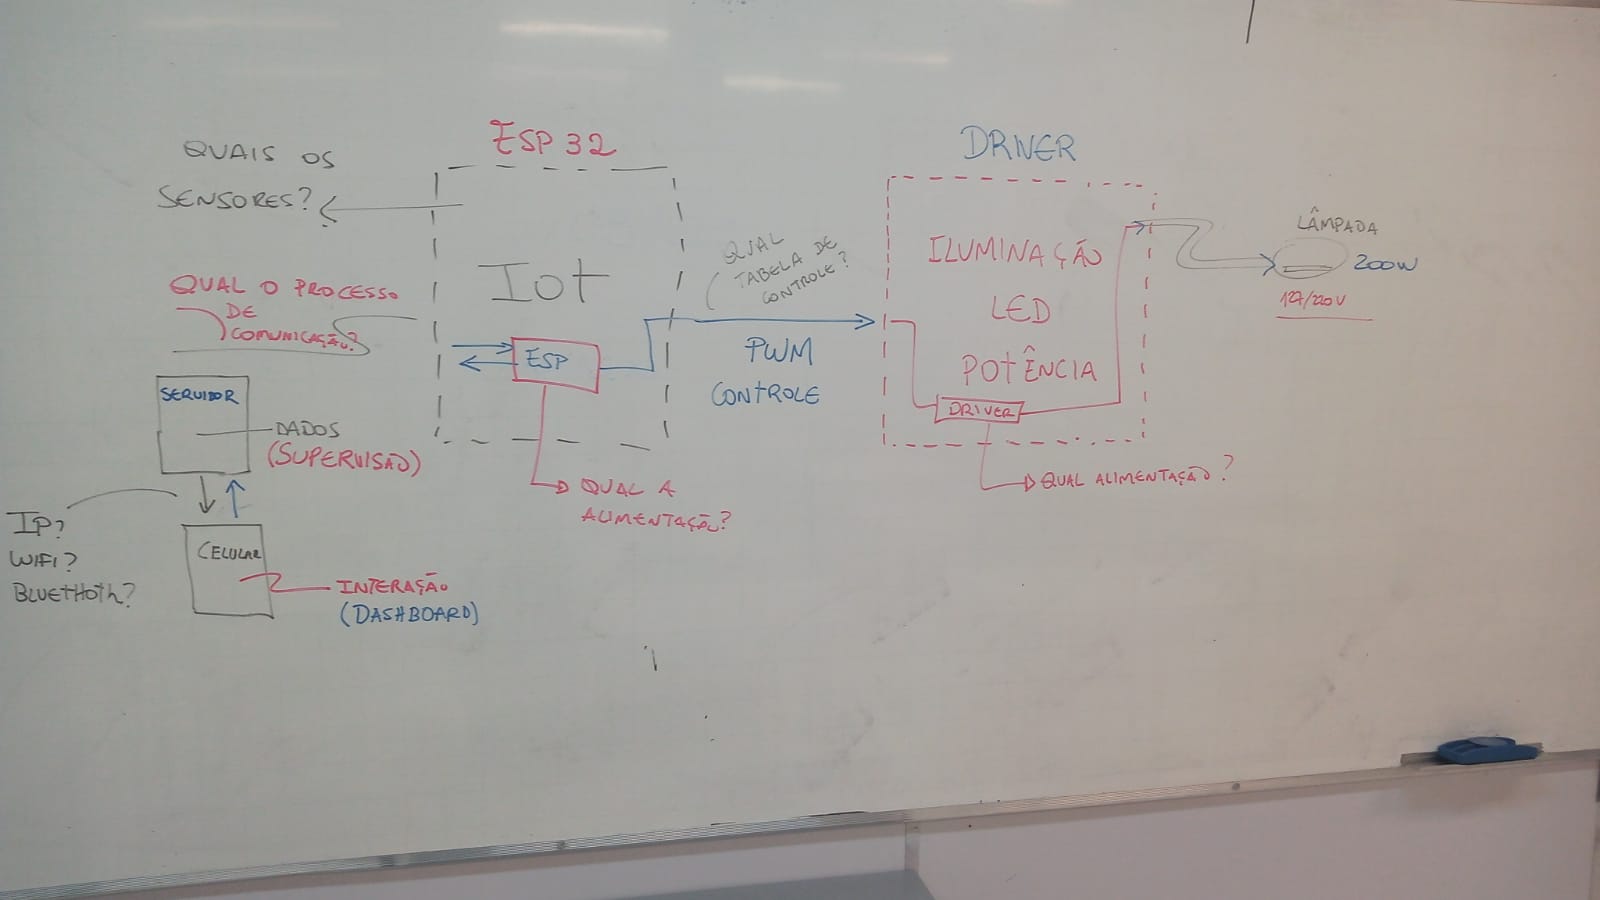 QUAIS OS
SENSORES?
QUAL O PROCESSO
DE
COMUNICAÇÃO?
SERVIDOR
DADOS
(SUPERVISÃO)
IP?
WIFI?
BLUETHOTH?
CELULAR
INTERAÇÃO
(DASHBOARD)
ESP 32
IOT
ESP
QUAL A
ALIMENTAÇÃO?
QUAL
TABELA DE
CONTROLE?
PWM
CONTROLE
DRIVER
ILUMINAÇÃO
LED
POTÊNCIA
DRIVER
QUAL ALIMENTAÇÃO?
LÂMPADA
200W
127/220V